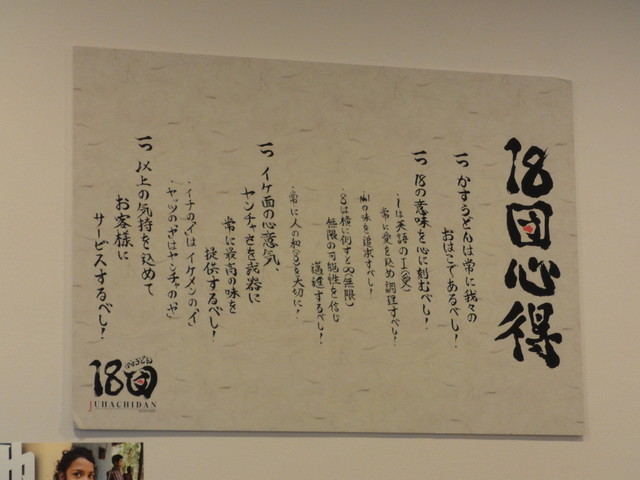 18団心得
一つ かすうどんは常に我々の
おはこであるべし!
一つ 18の意味を心に刻むべし!
・1は英語のI(愛)
常に愛を込め調理すべし!
の味を追求すべし!
・8は横に倒すと∞(無限)
無限の可能性を信じ
邁進するべし!
・常に人の和(8)を大切に!
一つ イケ面の心意気、
ヤンチャさを武器に
常に最高の味を
提供するべし!
・イチの"イ"はイケメンの"イ"
・ヤッツの"ヤ"はヤンチャの"ヤ"
一つ 以上の気持を込めて
お客様に
サービスするべし!
かすうどん
18団
JUHACHIDAN